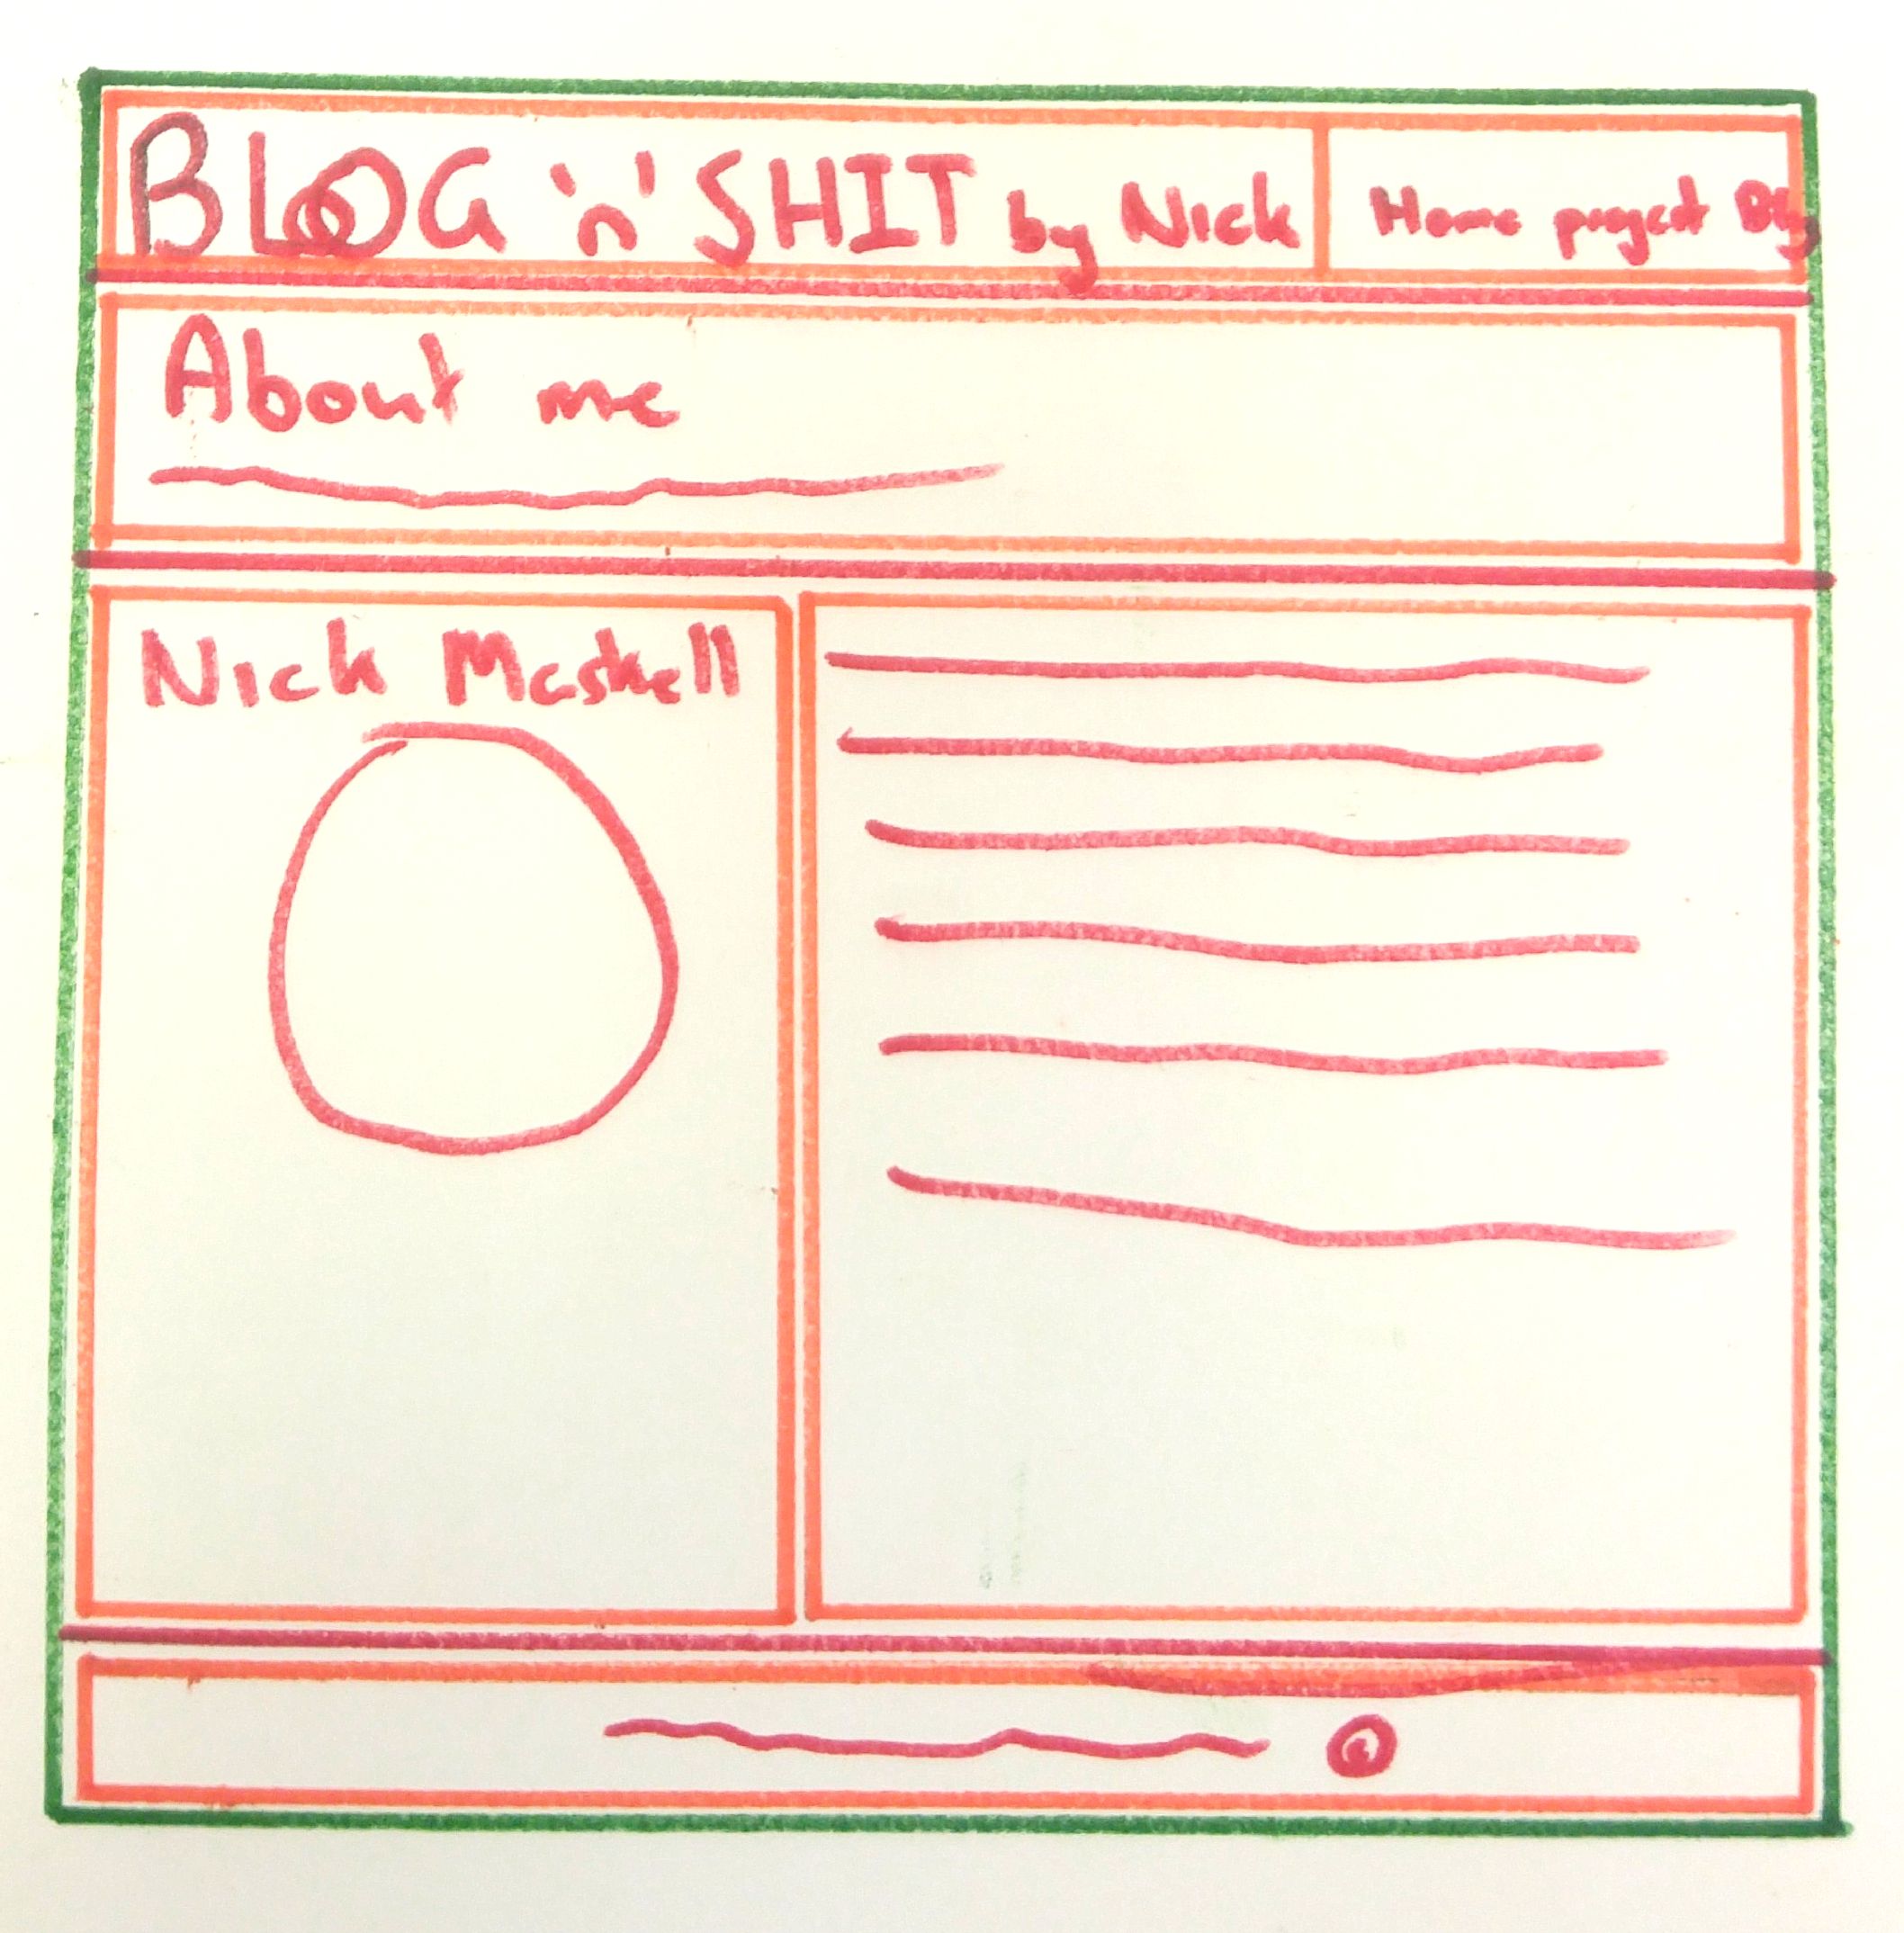 BLOG 'n' SHIT by Nick
Home project Blog
About me
Nick Maskell